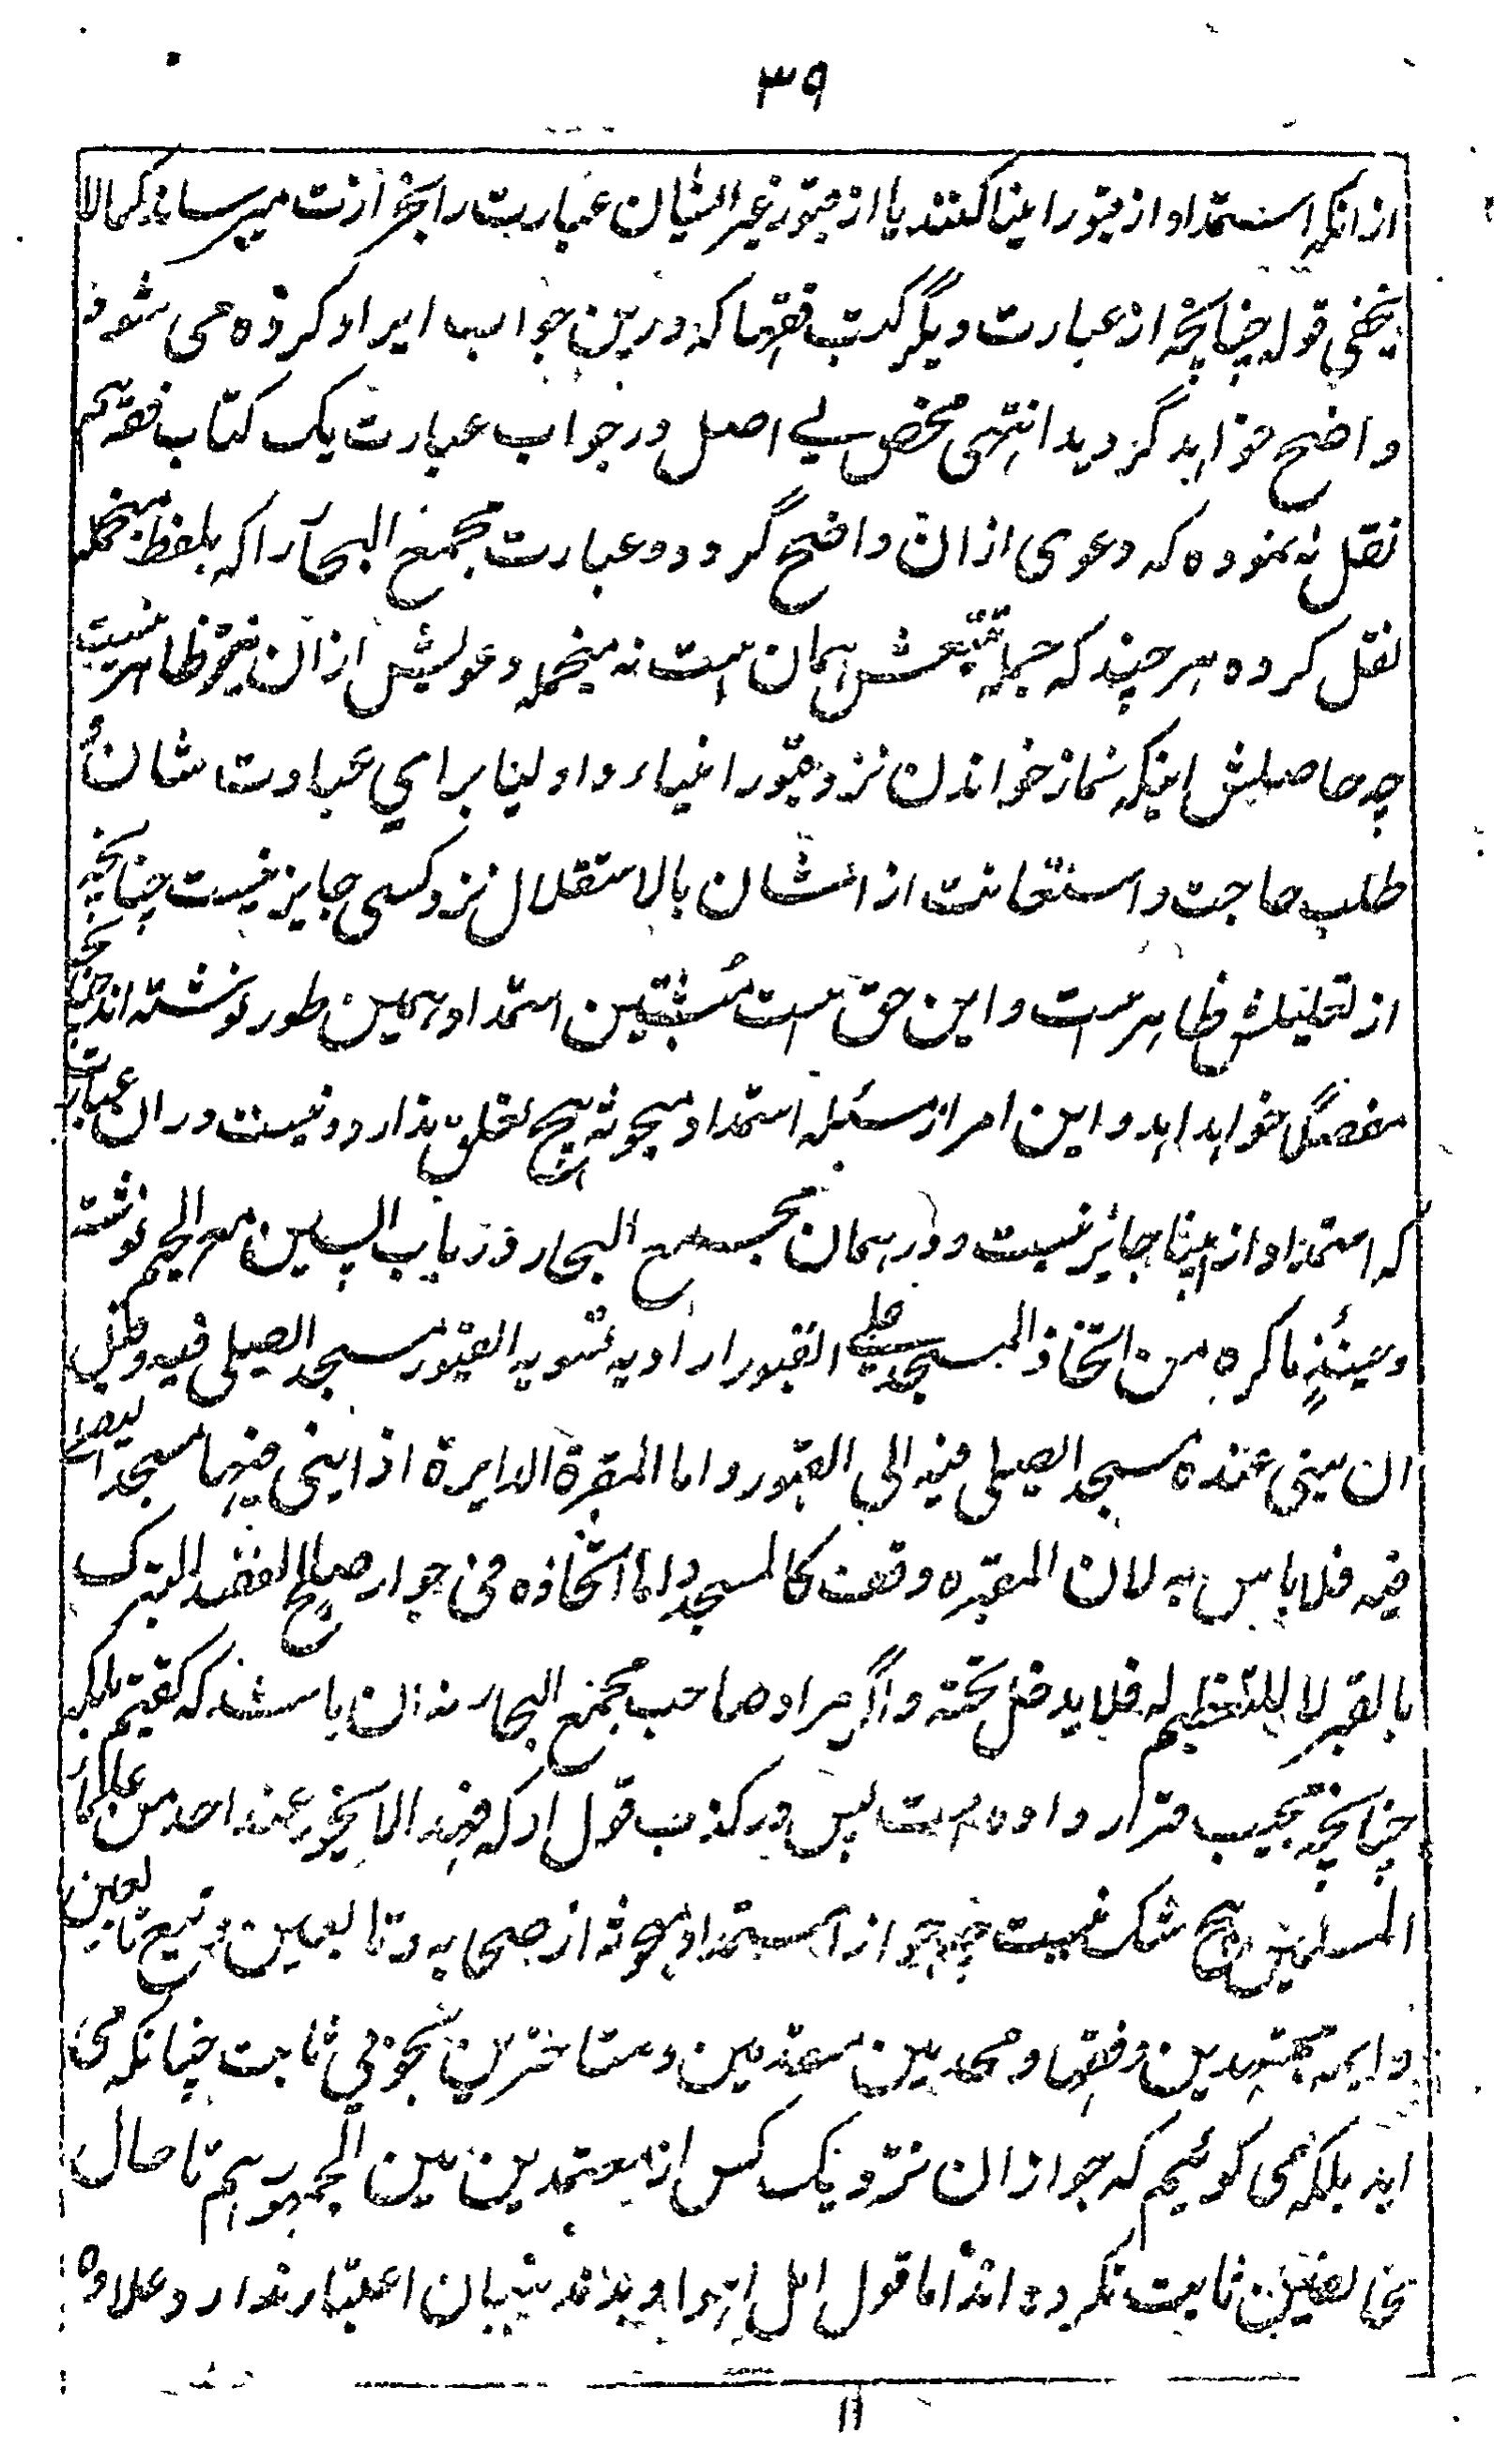 ۳۹
ازانکه استمداد از قبور اینها کنند یا از قبور غیر ایشان عبارت را بخر ازت میرساند کما لا
یخفی قوله چنانچه از عبارت دیگر کتب فقها که درین جواب ایراد کرده می شود
واضح خواهد گردید انتهی محض بے اصل در جواب عبارت یک کتاب فقه هم
نقل نه نموده که دعوی ازان واضح گردد و عبارت مجمع البحار را که بلفظ منجمله
نقل کرده هر چند که جمله تتبعش همان است نه منجمله دعویش ازان نیز ظاهر نیست
چه حاصلش اینکه نماز خواندن نزد قبور انبیاء و اولیا برای عبادت شان و
طلب حاجت و استعانت از ایشان بالاستقلال نزد کسی جایز نیست چنانچه
از تعلیلش ظاهر ست و این حق ست مُثبتین استمداد همین طور نوشته اند چنانچه
مفصلاً خواهد آمد و این امر از مسئله استمداد مبحوثه هیچ تعلق ندارد و نیست دران عبارت
که استمداد از اینها جائز نیست و در همان مجمع البحار در باب السین مع الجیم نوشته
وعینئذٍ ما کره من اتخاذ المسجد علی القبور اراد به تسویه القبور مسجد الصیلی فیه وقیل
ان یبنی عنده مسجد الصیلی فیه الی القبور و اما المقبرة الدایرة اذا بنی فیها مسجد لیصلے
فیه فلا باس به لان المقبره وقف کالمسجد و اما اتخاذه فی جوار صالح لقصد التبرک
بالقبر لا للتعظیم له فلا یدخل تحته و اگر مراد صاحب مجمع البحار نه آن باشند که گفتیم بلکه
چنانچه مجیب قرار داده ست پس در کذب قول او که فهذا لا یجوز عند احد من علماء
المسلمین هیچ شک نیست چه جواز استمداد مبحوثه از صحابه و تابعین و تبع تابعین
و ایمه مجتهدین و فقها و محدثین متقدمین و متاخرین بخوبی ثابت چنانکه می
آید بلکه می گوئیم که جواز آن نزد یک کس از معتمدین بین الجمهور هم تا حال
مخالفین ثابت نکرده اند اما قول اهل اهوا و بدمذهبان اعتبار ندارد و علاوه
۱۱